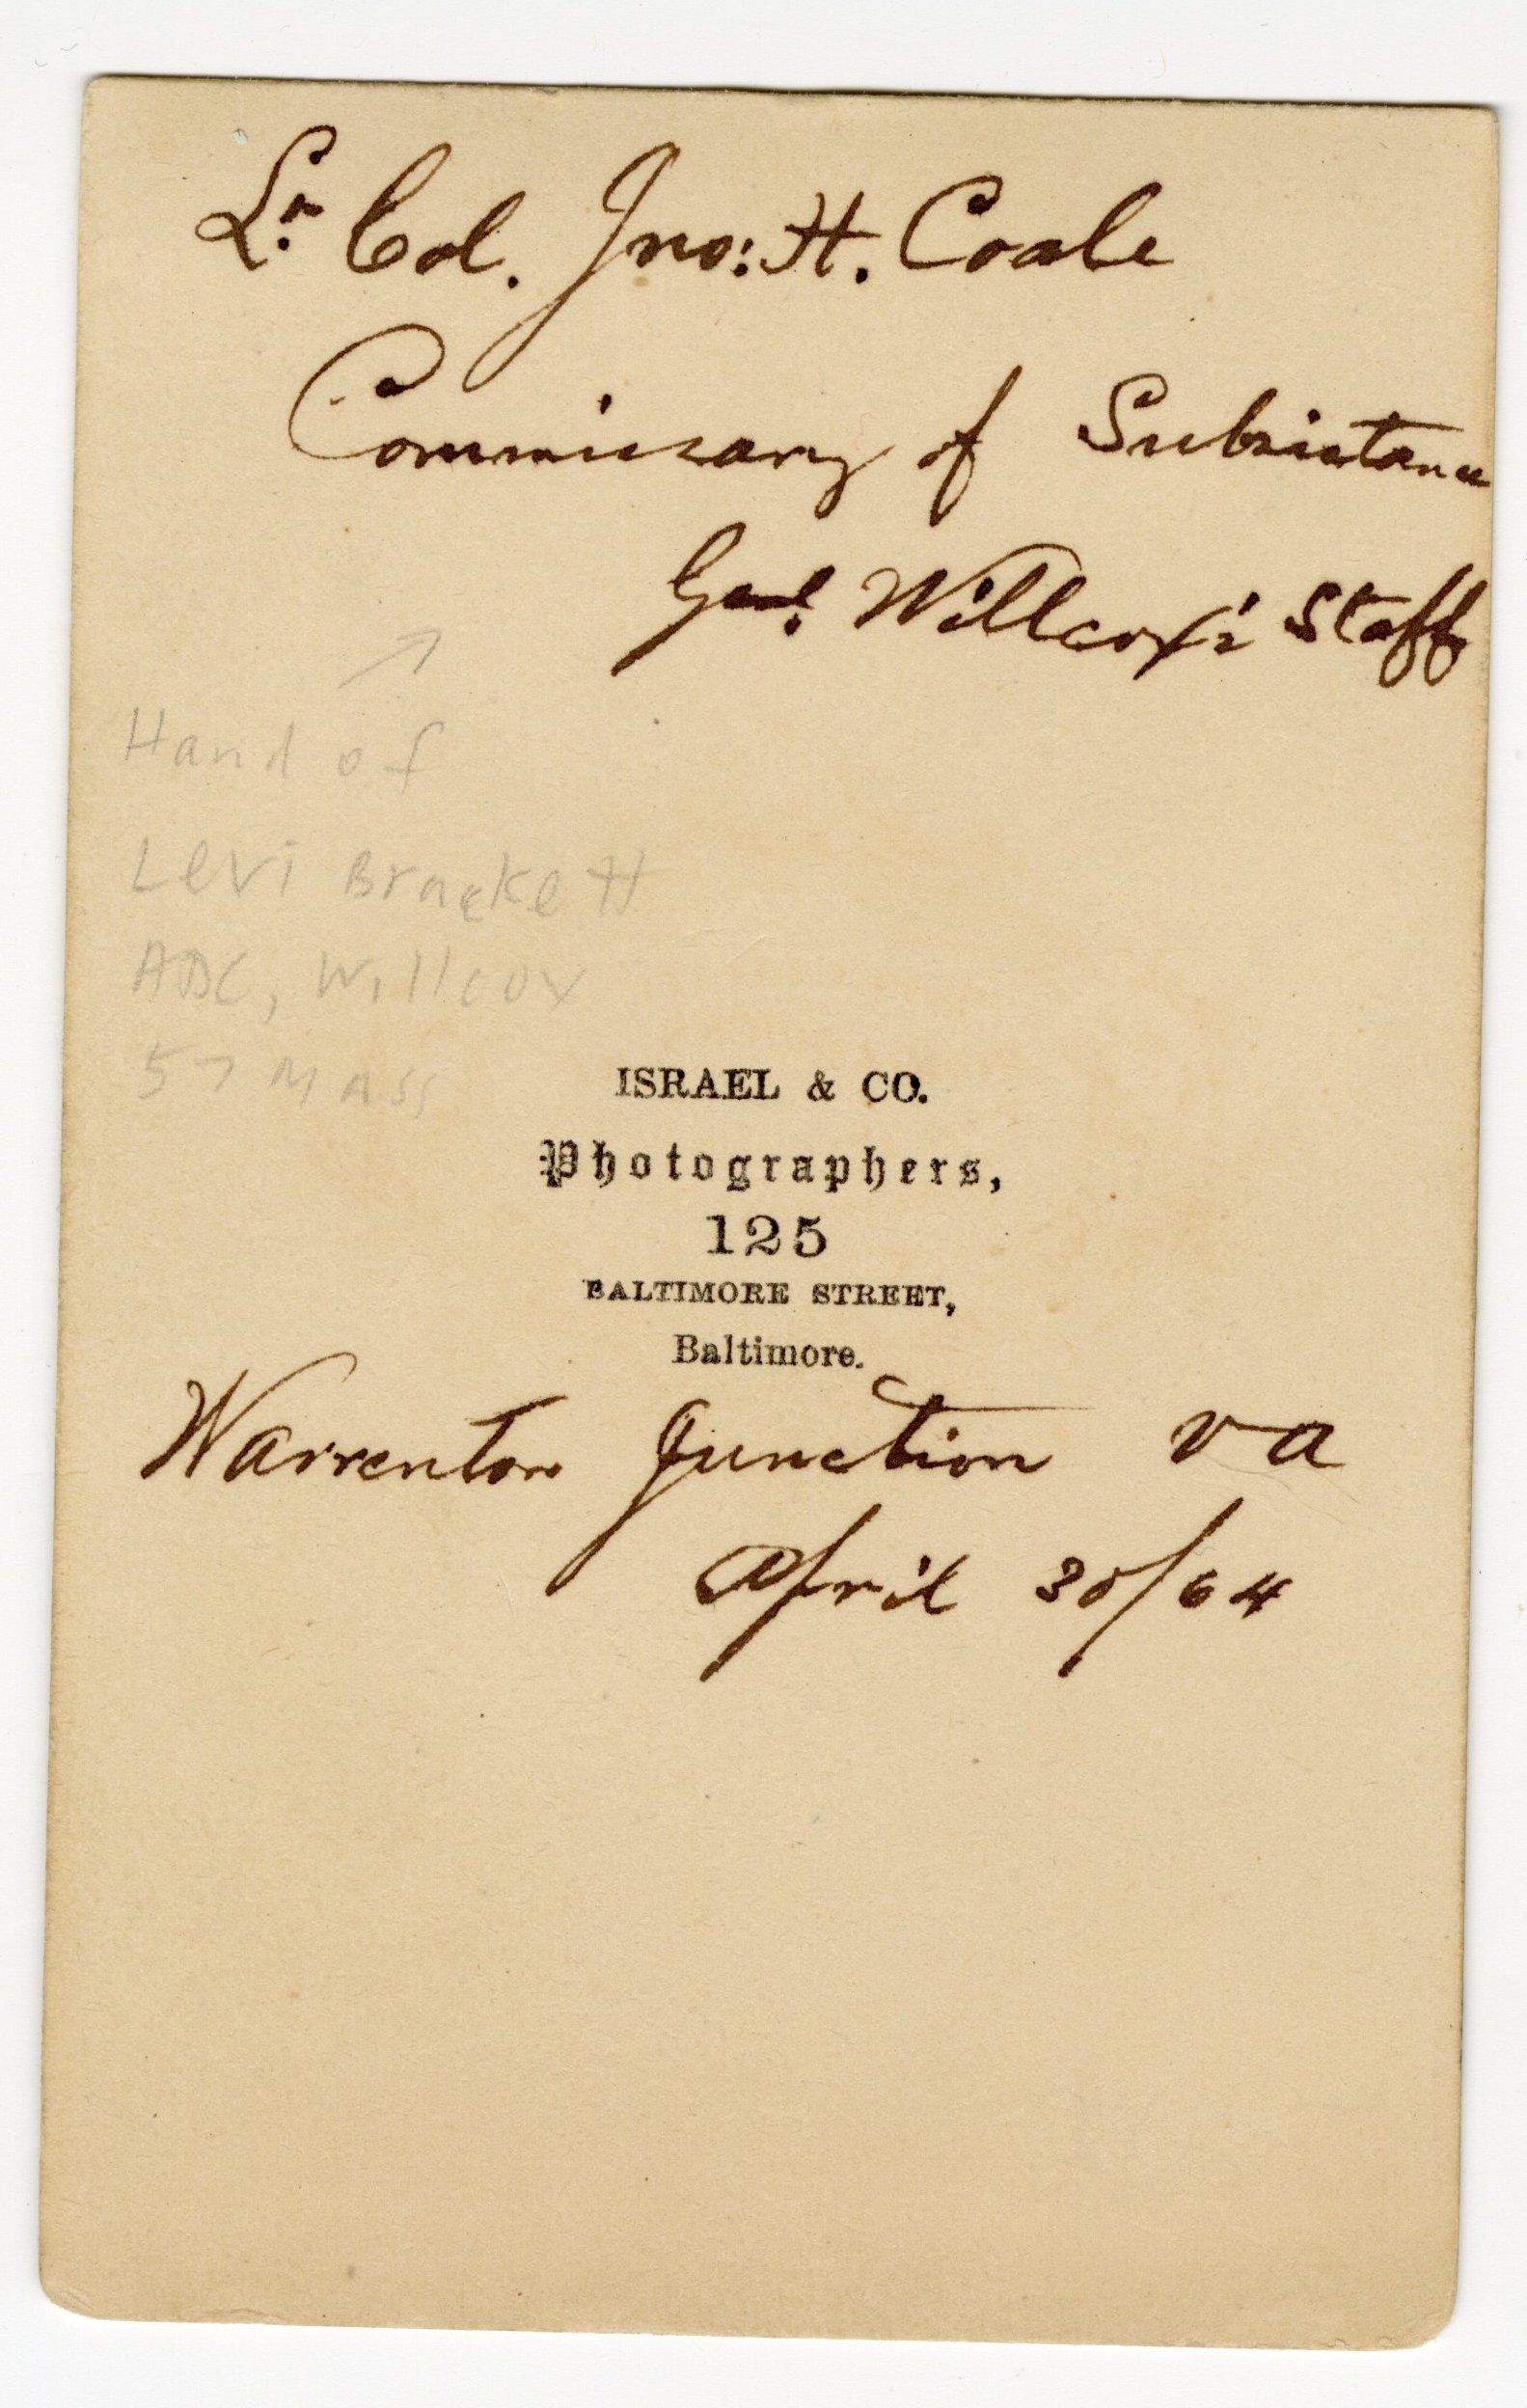 Lt. Col. Jno: H. Coale
Commissary of Subsistance
Genl. Willcox's Staff
Hand of
Levi Brackett
ADC, Willcox
57 MASS
ISRAEL & CO.
Photographers,
125
BALTIMORE STREET,
Baltimore.
Warrenton Junction va
April 30/64